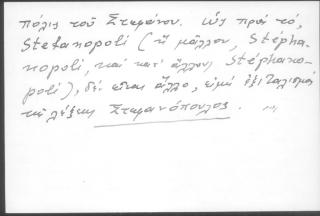 πόλις τοῦ Στεφάνου. Ὡς πρὸς τό,
Stefanopoli (ἢ μᾶλλον, Stépha-
nopoli, καὶ κατ' ἄλλους Stéphano-
poli), δὲν εἶναι ἄλλο, εἰμὴ ἐξιταλισμὸς
τῆς λέξεως Στεφανόπουλος.